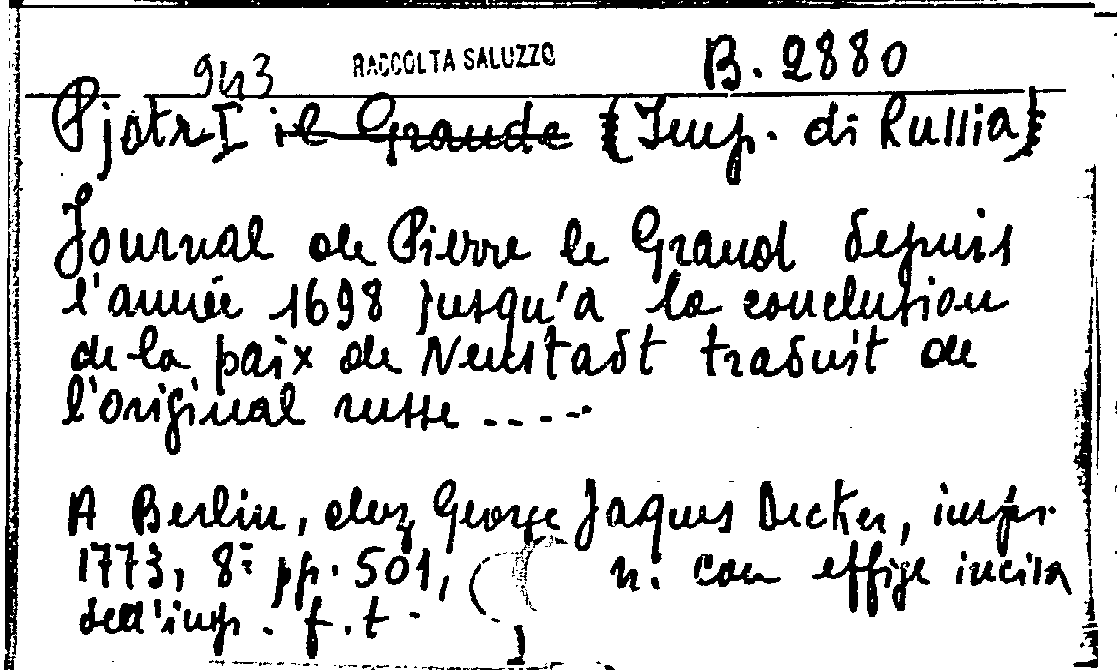 943 RACCOLTA SALUZZO B. 2880
Pjotr I il Grande (Imp. di Russia)
Journal de Pierre le Grand depuis
l'année 1698 jusqu'a la conclusion
de la paix de Neustadt traduit de
l'original russe ----
A Berlin, chez George Jaques Decker, impr.
1773, 8º pp. 501, n. con effige incisa
dell'imp. f.t.